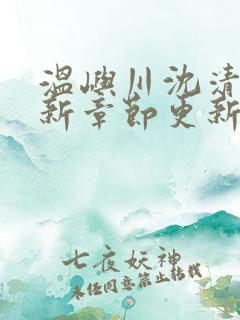 温嶼川沈清
新章節更新
七夜妖神
未经同意禁止转载